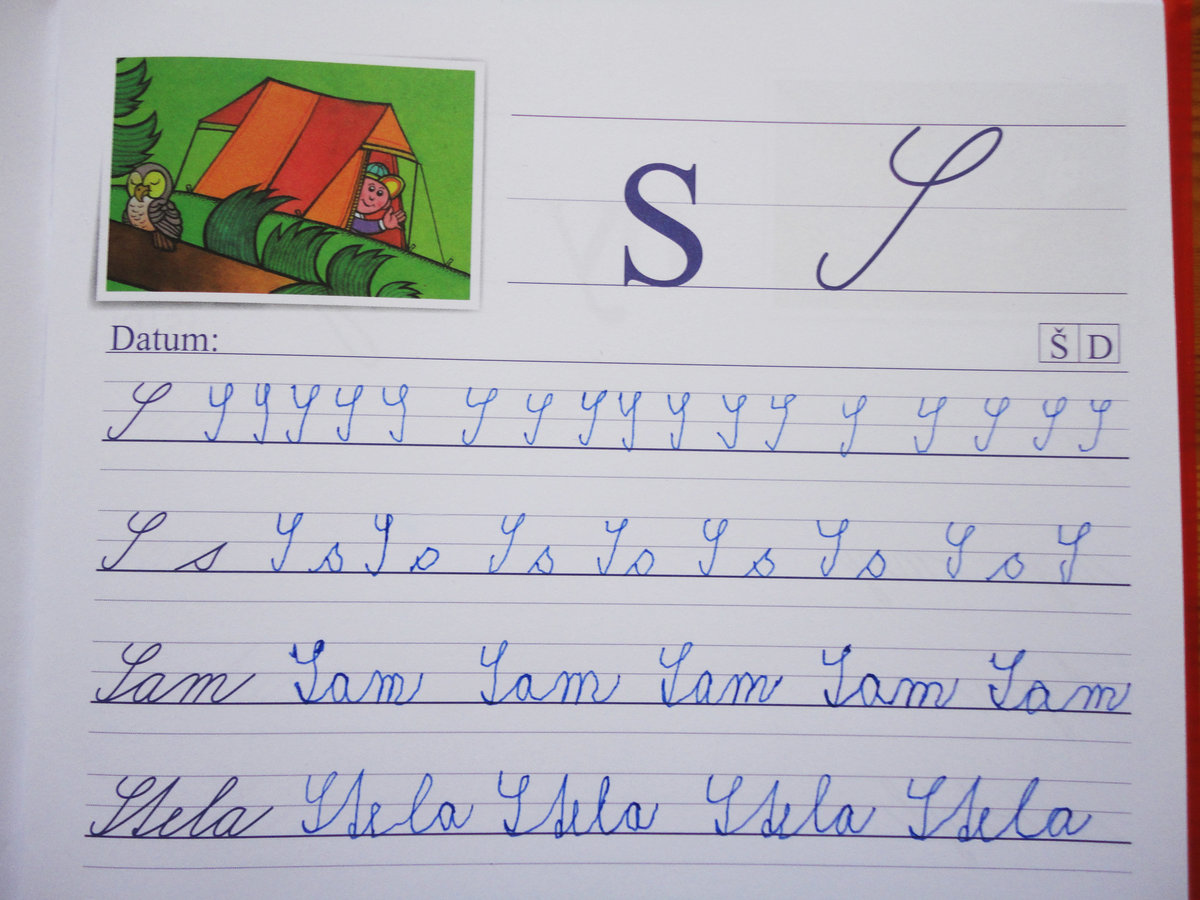 S S
Datum: Š D
S S S S S S S S S S S S S S S S S S
S s S s S s S s S s S s S s S s S
Sam Sam Sam Sam Sam Sam
Stela Stela Stela Stela Stela